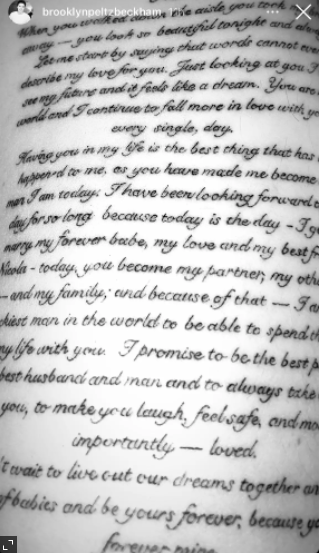 brooklynpeltzbeckham
When you walked down the aisle, you took my
away — you look so beautiful tonight and alw
Let me start by saying that words cannot eve
describe my love for you. Just looking at you I
see my future and it feels like a dream. You are
world and I continue to fall more in love with yo
every single, day.
Having you in my life is the best thing that has
happened to me, as you have made me become
man I am today: I have been looking forward t
day for so long because today is the day - I g
marry my forever babe, my love and my best f
Nicola - today, you become my partner, my oth
— and my family; and because of that — I a
ckiest man in the world to be able to spend th
my life with you. I promise to be the best p
best husband and man and to always take
you, to make you laugh, feel safe, and mo
importantly — loved.
't wait to live out our dreams together an
of babies and be yours forever, because yo
forever mine